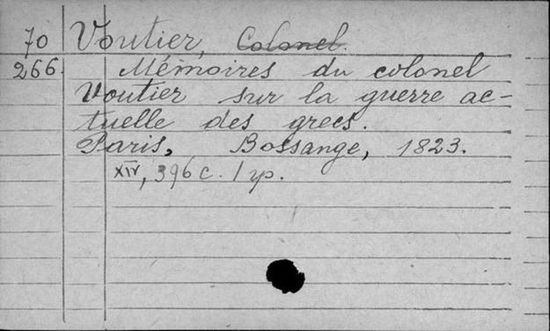 70 Voutier, Colonel.
266. Mémoires du colonel
Voutier sur la guerre ac-
tuelle des grecs.
Paris, Bossange, 1823.
XIV, 396 c. 1 р.